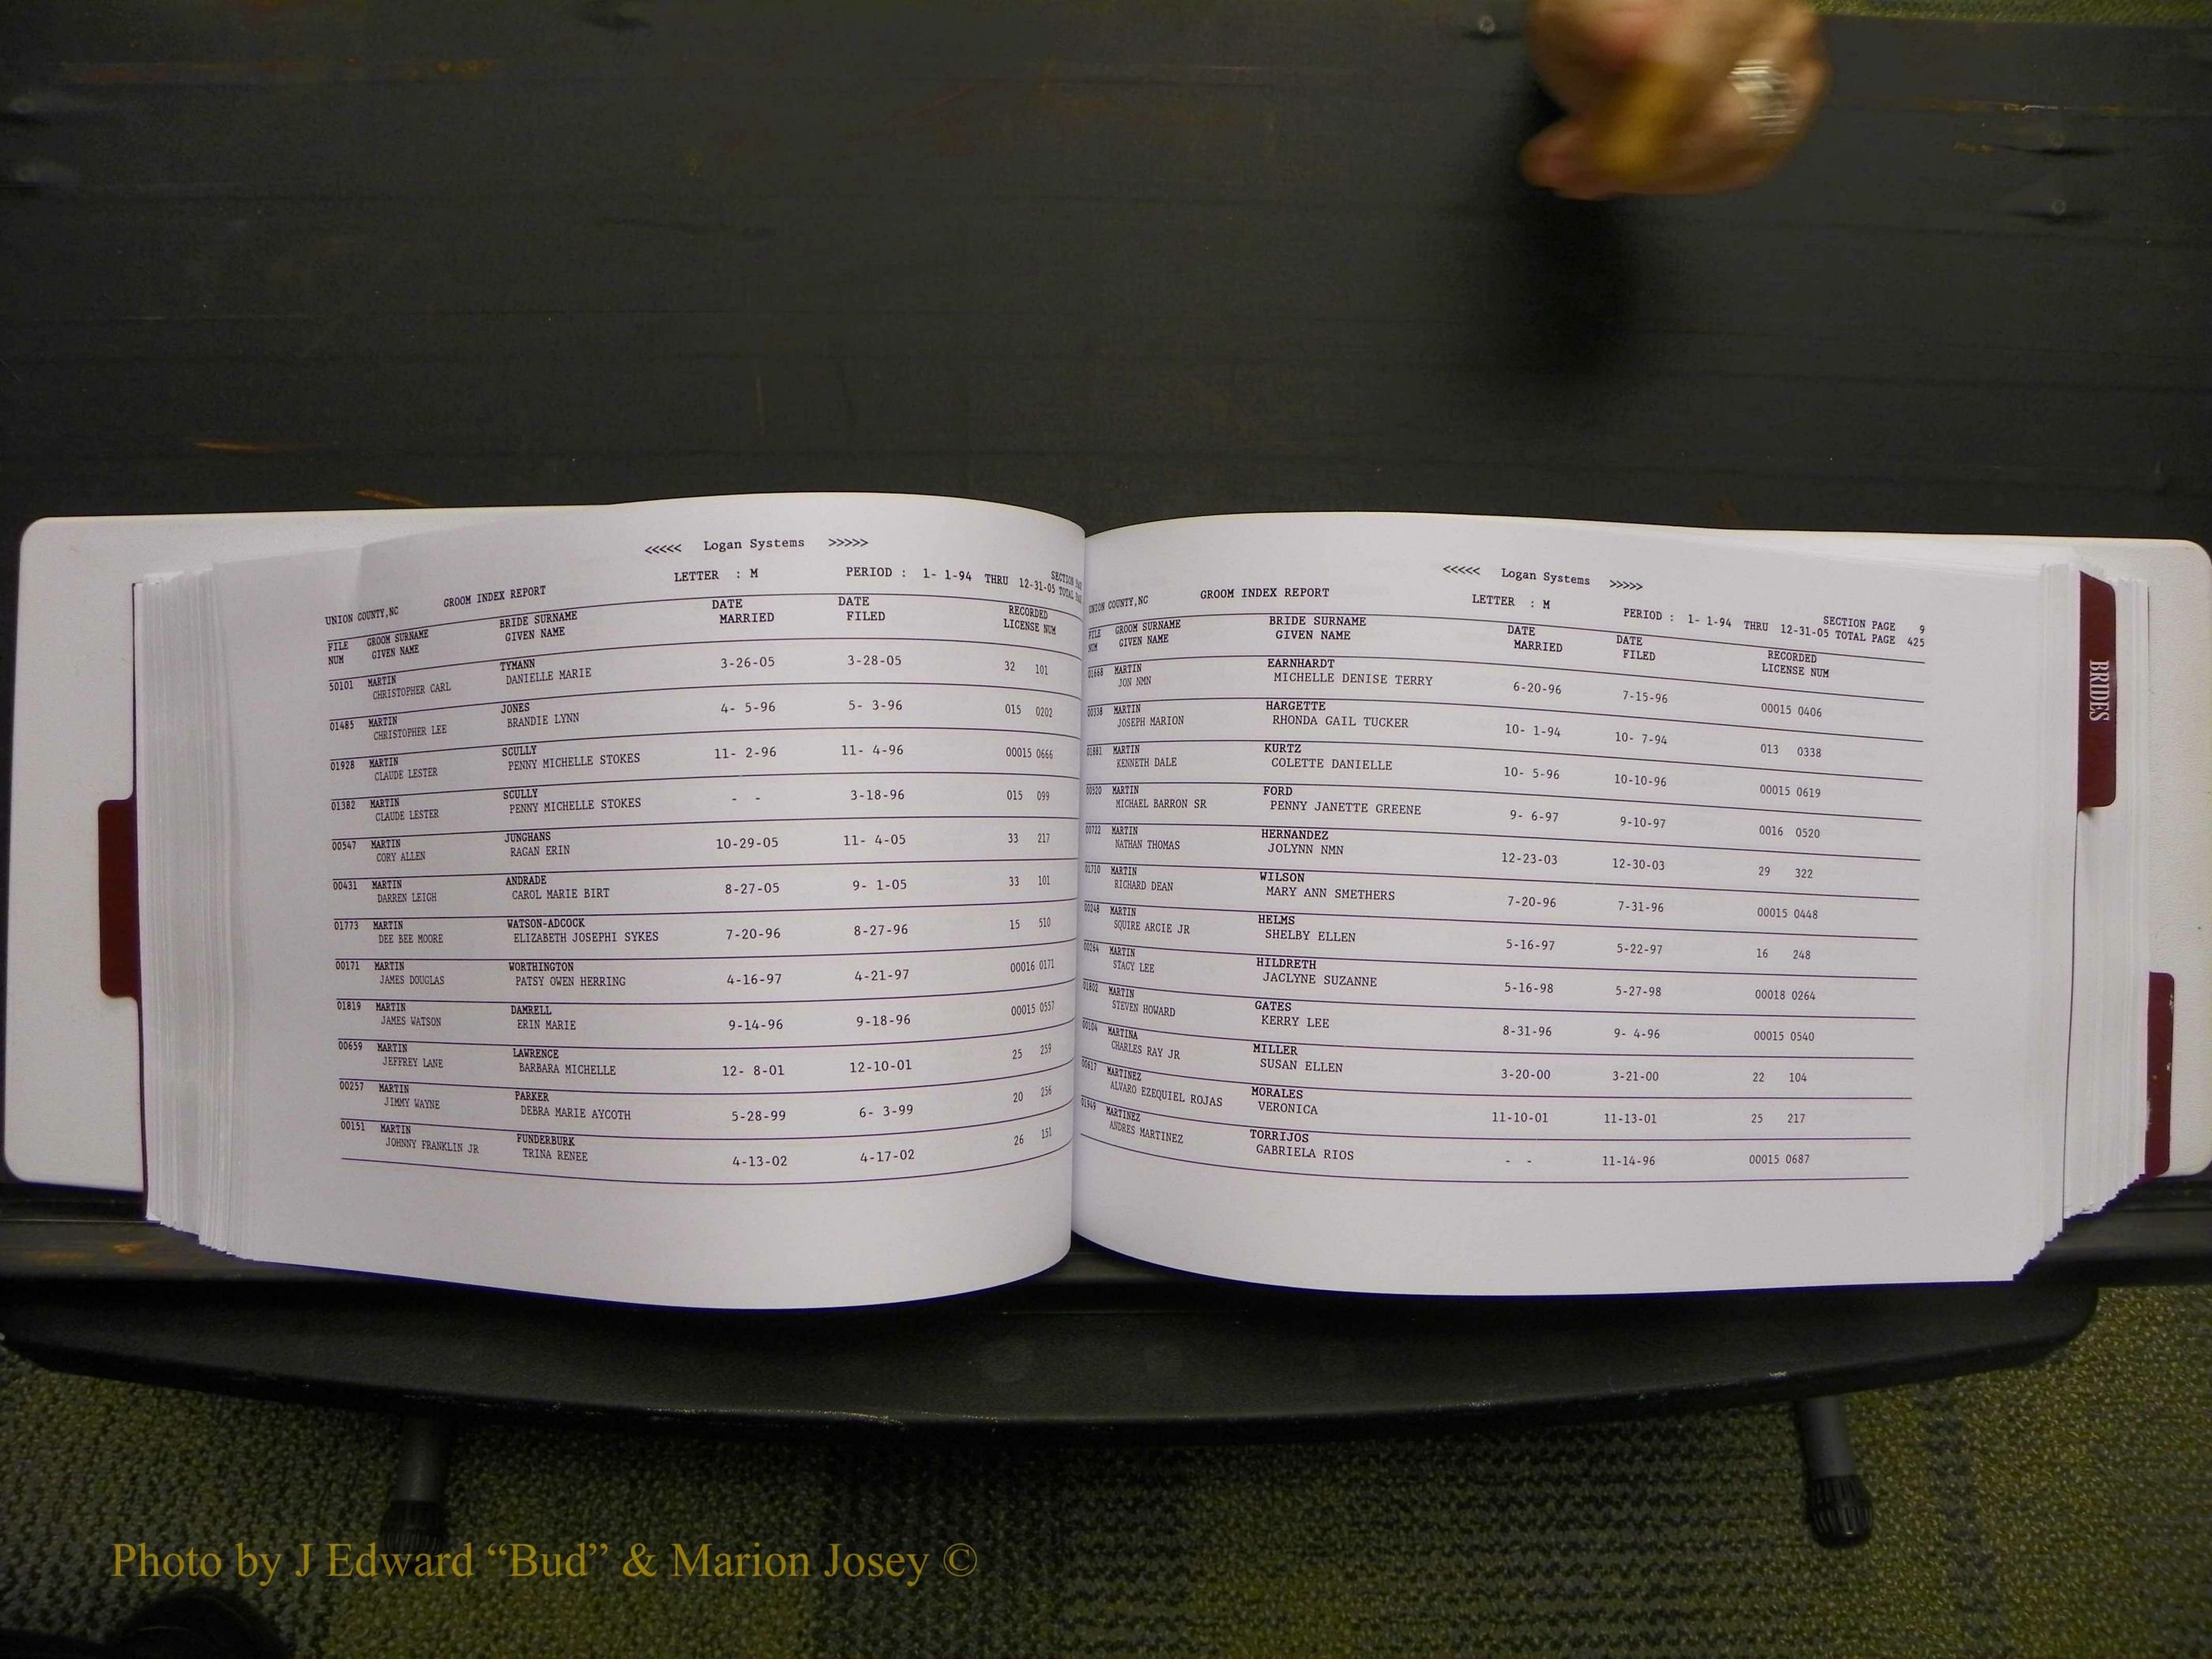 <<<<< Logan Systems >>>>>
UNION COUNTY,NC GROOM INDEX REPORT LETTER : M PERIOD : 1- 1-94 THRU 12-31-05 TOTAL
FILE GROOM SURNAME BRIDE SURNAME DATE DATE RECORDED
NUM GIVEN NAME GIVEN NAME MARRIED FILED LICENSE NUM
50101 MARTIN TYMANN 3-26-05 3-28-05 32 101
CHRISTOPHER CARL DANIELLE MARIE
01485 MARTIN JONES 4- 5-96 5- 3-96 015 0202
CHRISTOPHER LEE BRANDIE LYNN
01928 MARTIN SCULLY 11- 2-96 11- 4-96 00015 0666
CLAUDE LESTER PENNY MICHELLE STOKES
01382 MARTIN SCULLY - - 3-18-96 015 099
CLAUDE LESTER PENNY MICHELLE STOKES
00547 MARTIN JUNGHANS 10-29-05 11- 4-05 33 217
CORY ALLEN RAGAN ERIN
00431 MARTIN ANDRADE 8-27-05 9- 1-05 33 101
DARREN LEIGH CAROL MARIE BIRT
01773 MARTIN WATSON-ADCOCK 7-20-96 8-27-96 15 510
DEE BEE MOORE ELIZABETH JOSEPHI SYKES
00171 MARTIN WORTHINGTON 4-16-97 4-21-97 00016 0171
JAMES DOUGLAS PATSY OWEN HERRING
01819 MARTIN DAMRELL 9-14-96 9-18-96 00015 0557
JAMES WATSON ERIN MARIE
00659 MARTIN LAWRENCE 12- 8-01 12-10-01 25 259
JEFFREY LANE BARBARA MICHELLE
00257 MARTIN PARKER 5-28-99 6- 3-99 20 256
JIMMY WAYNE DEBRA MARIE AYCOTH
00151 MARTIN FUNDERBURK 4-13-02 4-17-02 26 151
JOHNNY FRANKLIN JR TRINA RENEE
<<<<< Logan Systems >>>>>
UNION COUNTY,NC GROOM INDEX REPORT LETTER : M PERIOD : 1- 1-94 THRU 12-31-05 SECTION PAGE 9
TOTAL PAGE 425
FILE GROOM SURNAME BRIDE SURNAME DATE DATE RECORDED
NUM GIVEN NAME GIVEN NAME MARRIED FILED LICENSE NUM
01668 MARTIN EARNHARDT 6-20-96 7-15-96 00015 0406
JON NMN MICHELLE DENISE TERRY
00338 MARTIN HARGETTE 10- 1-94 10- 7-94 013 0338
JOSEPH MARION RHONDA GAIL TUCKER
01881 MARTIN KURTZ 10- 5-96 10-10-96 00015 0619
KENNETH DALE COLETTE DANIELLE
00520 MARTIN FORD 9- 6-97 9-10-97 0016 0520
MICHAEL BARRON SR PENNY JANETTE GREENE
00722 MARTIN HERNANDEZ 12-23-03 12-30-03 29 322
NATHAN THOMAS JOLYNN NMN
01710 MARTIN WILSON 7-20-96 7-31-96 00015 0448
RICHARD DEAN MARY ANN SMETHERS
00248 MARTIN HELMS 5-16-97 5-22-97 16 248
SQUIRE ARCIE JR SHELBY ELLEN
00264 MARTIN HILDRETH 5-16-98 5-27-98 00018 0264
STACY LEE JACLYNE SUZANNE
01802 MARTIN GATES 8-31-96 9- 4-96 00015 0540
STEVEN HOWARD KERRY LEE
00104 MARTINA MILLER 3-20-00 3-21-00 22 104
CHARLES RAY JR SUSAN ELLEN
00617 MARTINEZ MORALES 11-10-01 11-13-01 25 217
ALVARO EZEQUIEL ROJAS VERONICA
01949 MARTINEZ TORRIJOS - - 11-14-96 00015 0687
ANDRES MARTINEZ GABRIELA RIOS
BRIDES
Photo by J Edward “Bud” & Marion Josey ©